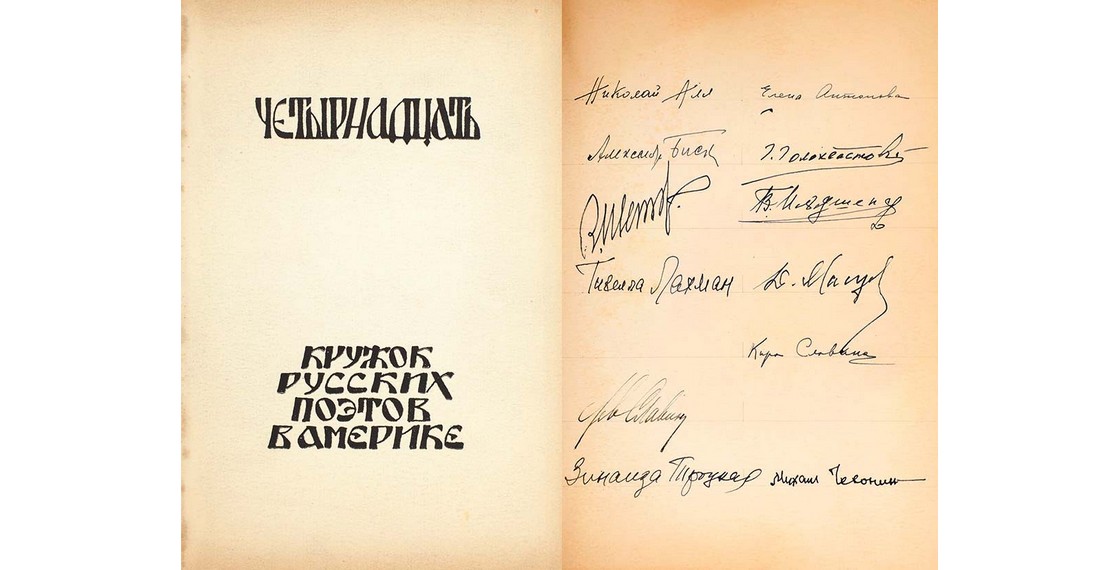 ЧЕТЫРНАДЦАТЬ
КРУЖОК
РУССКИХ
ПОЭТОВ
В АМЕРИКЕ
Николай Алл Елена Антонова
Александр Биск Г. Голохвастов
В. Ильяшенко
Гизелла Лахман Д. Магула
Кира Славина
Лев Славин
Зинаида Троцкая Михаил Чехонин